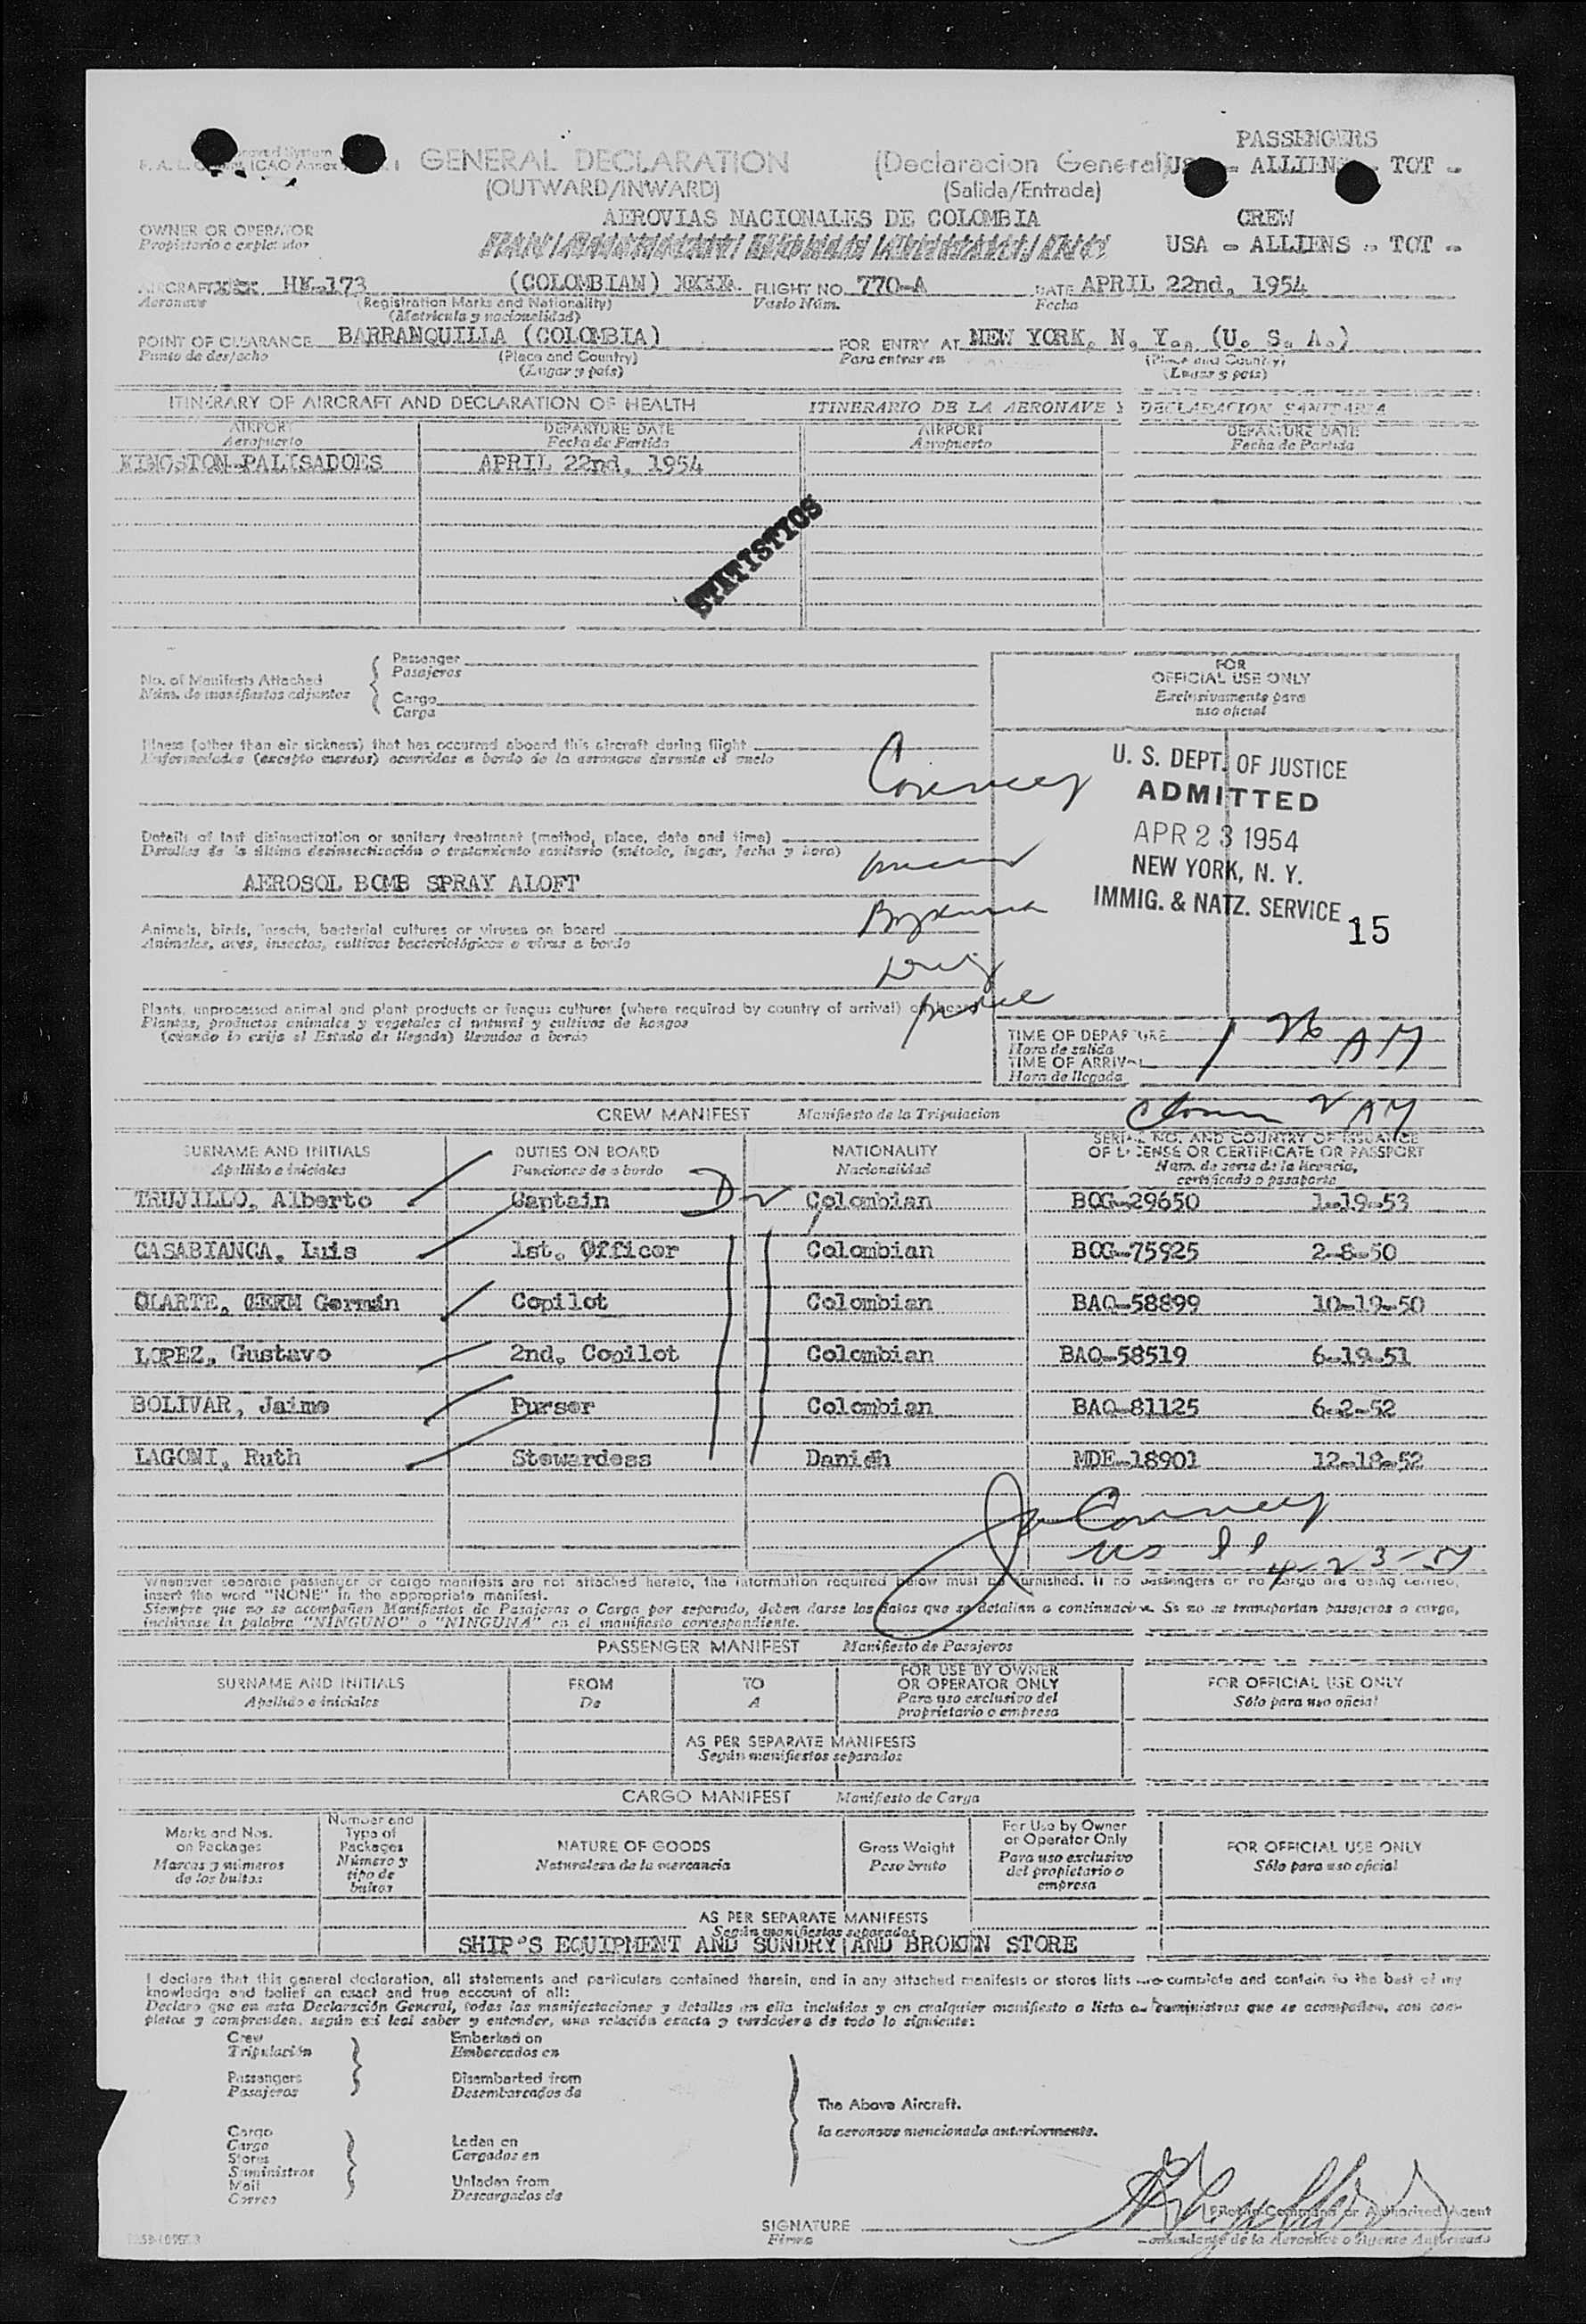 PASSENGERS
GENERAL DECLARATION (Declaracion General) US - ALLIENS - TOT -
(OUTWARD/INWARD) (Salida/Entrada)
AEROVIAS NACIONALES DE COLOMBIA CREW
OWNER OR OPERATOR
Propietario o explotador
USA - ALLIENS - TOT -
AIRCRAFT HK-173 (COLOMBIAN) FLIGHT NO. 770-A DATE APRIL 22nd, 1954
Aeronave (Registration Marks and Nationality) Vuelo Núm. Fecha
(Matricula y nacionalidad)
POINT OF CLEARANCE BARRANQUILLA (COLOMBIA) FOR ENTRY AT NEW YORK, N. Y., (U. S. A.)
Punto de despacho (Place and Country) Para entrar en (Place and Country)
(Lugar y país) (Lugar y país)
ITINERARY OF AIRCRAFT AND DECLARATION OF HEALTH ITINERARIO DE LA AERONAVE Y DECLARACION SANITARIA
AIRPORT DEPARTURE DATE AIRPORT DEPARTURE DATE
Aeropuerto Fecha de Partida Aeropuerto Fecha de Partida
KINGSTON-PALISADOES APRIL 22nd, 1954
STATISTICS
No. of Manifests Attached
Núm. de manifiestos adjuntos
Passenger
Pasajeros
Cargo
Carga
FOR
OFFICIAL USE ONLY
Exclusivamente para
uso oficial
Illness (other than air sickness) that has occurred aboard this aircraft during flight
Enfermedades (excepto mareos) ocurridas a bordo de la aeronave durante el vuelo
U. S. DEPT. OF JUSTICE
ADMITTED
APR 23 1954
NEW YORK, N. Y.
IMMIG. & NATZ. SERVICE 15
Details of last disinsectization or sanitary treatment (method, place, date and time)
Detalles de la última desinsectización o tratamiento sanitario (método, lugar, fecha y hora)
AEROSOL BOMB SPRAY ALOFT
Animals, birds, insects, bacterial cultures or viruses on board
Animales, aves, insectos, cultivos bacteriológicos o virus a bordo
Plants, unprocessed animal and plant products or fungus cultures (where required by country of arrival) on board
Plantas, productos animales y vegetales al natural y cultivos de hongos
(cuando lo exija el Estado de llegada) llevados a bordo
TIME OF DEPARTURE
Hora de salida
TIME OF ARRIVAL 1 26 AM
Hora de llegada
2 AM
CREW MANIFEST Manifiesto de la Tripulacion
SURNAME AND INITIALS DUTIES ON BOARD NATIONALITY SERIAL NO. AND COUNTRY OF ISSUANCE
OF LICENSE OR CERTIFICATE OR PASSPORT
Apellido e iniciales Funciones de a bordo Nacionalidad Núm. de serie de la licencia,
certificado o pasaporte
TRUJILLO, Alberto Captain Colombian BOG-29650 1-19-53
CASABIANCA, Luis 1st. Officer Colombian BOG-75925 2-8-50
OLARTE, GERM Germán Copilot Colombian BAQ-58899 10-19-50
LOPEZ, Gustavo 2nd. Copilot Colombian BAQ-58519 6-19-51
BOLIVAR, Jaime Purser Colombian BAQ-81125 6-2-52
LAGONI, Ruth Stewardess Danish MDE-18901 12-18-52
4-23-54
Whenever separate passenger or cargo manifests are not attached hereto, the information required below must be furnished. If no passengers or no cargo are being carried,
insert the word "NONE" in the appropriate manifest.
Siempre que no se acompañen Manifiestos de Pasajeros o Carga por separado, deben darse los datos que se detallan a continuación. Si no se transportan pasajeros o carga,
inclúyase la palabra "NINGUNO" o "NINGUNA" en el manifiesto correspondiente.
PASSENGER MANIFEST Manifiesto de Pasajeros
SURNAME AND INITIALS FROM TO FOR USE BY OWNER
OR OPERATOR ONLY FOR OFFICIAL USE ONLY
Apellido e iniciales De A Para uso exclusivo del
propietario o empresa Sólo para uso oficial
AS PER SEPARATE MANIFESTS
Según manifiestos separados
CARGO MANIFEST Manifiesto de Carga
Marks and Nos.
on Packages
Marcas y números
de los bultos
Number and
Type of
Packages
Número y
tipo de
bultos
NATURE OF GOODS
Naturaleza de la mercancia
Gross Weight
Peso bruto
For Use by Owner
or Operator Only
Para uso exclusivo
del propietario o
empresa
FOR OFFICIAL USE ONLY
Sólo para uso oficial
AS PER SEPARATE MANIFESTS
Según manifiestos separados
SHIP'S EQUIPMENT AND SUNDRY AND BROKEN STORE
I declare that this general declaration, all statements and particulars contained therein, and in any attached manifests or stores lists are complete and contain to the best of my
knowledge and belief an exact and true account of all:
Declaro que en esta Declaración General, todas las manifestaciones y detalles en ella incluidos y en cualquier manifiesto o lista de suministros que se acompañen, son com-
pletos y comprenden, según mi leal saber y entender, una relación exacta y verdadera de todo lo siguiente:
Crew
Tripulación
Passengers
Pasajeros
Embarked on
Embarcados en
Disembarked from
Desembarcados de
The Above Aircraft.
la aeronave mencionada anteriormente.
Cargo
Carga
Stores
Suministros
Mail
Correo
Laden on
Cargados en
Unladen from
Descargados de
SIGNATURE
Firma
Pilot-in-Command or Authorized Agent
Comandante de la Aeronave o Agente Autorizado